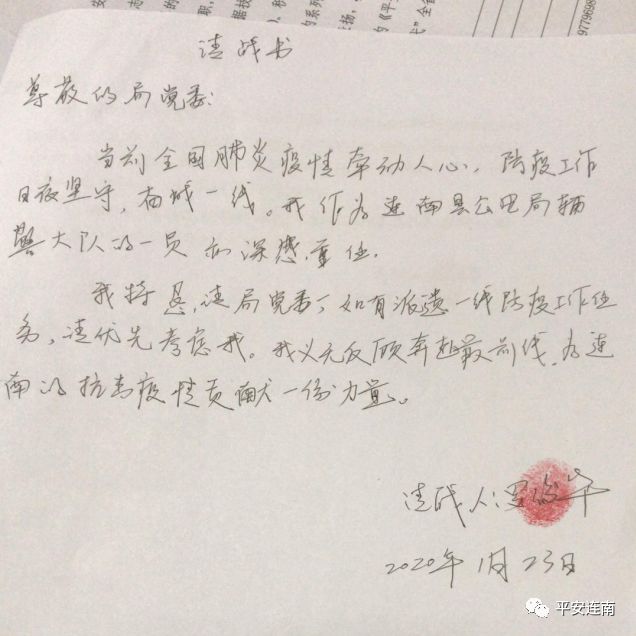 请战书
尊敬的局党委:
当前全国肺炎疫情牵动人心,防疫工作
日夜坚守,奋战一线。我作为连南县公安局辅
警大队的一员 深感重任.
我特 请局党委,如有派遣一线防疫工作任
务,请优先考虑我。我义无反顾奔赴最前线,为连
南的抗击疫情贡献一份力量。
请战人:罗俊华
2020年1月23日
平安连南
9779698